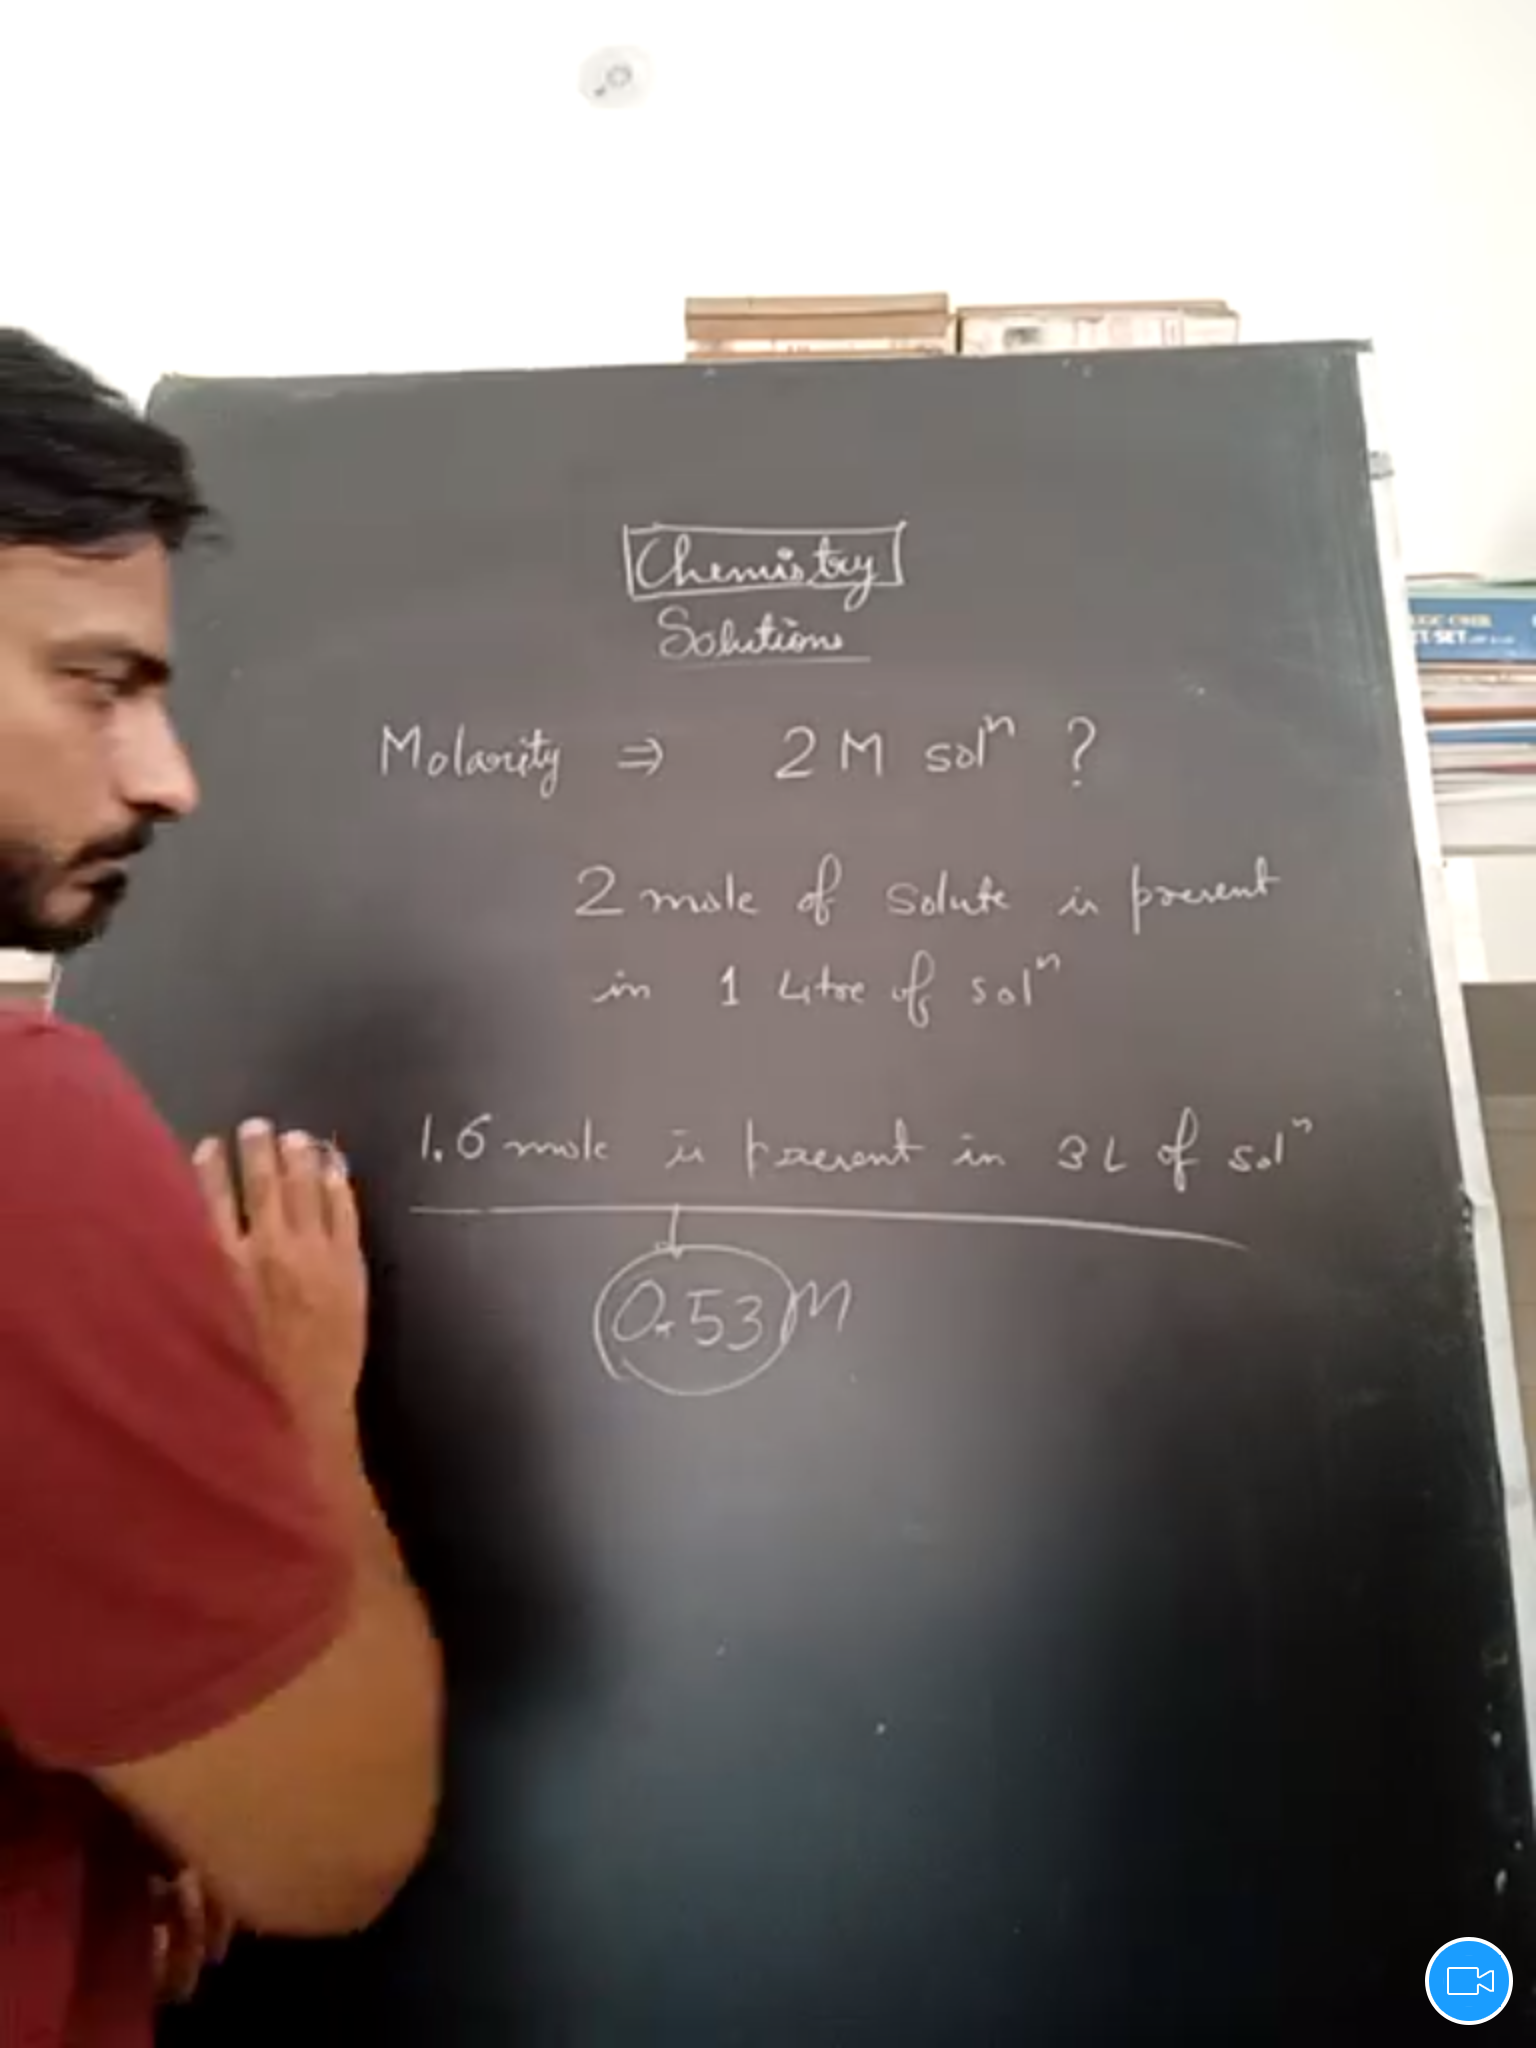 Chemistry
Solutions
Molarity ⇒ 2 M solⁿ ?
2 mole of solute is present
in 1 Litre of solⁿ
1.6 mole is present in 3 L of solⁿ
0.53 M
SET